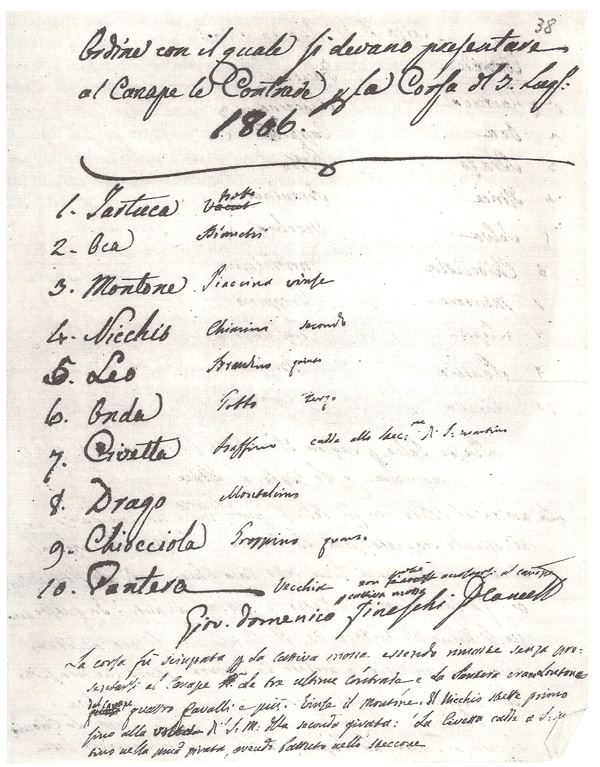 38
Ordine con il quale si devano presentare
al Canape le Contrade p. la Corsa di 3. Lugl:
1806.
1. Tartuca
2. Oca Bianchi
3. Montone Piaccina vinse
4. Nicchio Chiarini secondo
5. Leo Brandino quinto
6. Onda Gobbo terzo
7. Civetta cadde allo stecc.ne di S. Martino
8. Drago Montalcino
9. Chiocciola Groppino quarto
10. Pantera Vecchia non accostarsi al canape
p cattiva mossa
Giov. Domenico Fineschi Cancell
La corsa fù sciupata p la cattiva mossa essendo rimaste senza pre-
sentarsi al Canape le tre ultime contrade e la Pantera era lontana
dal Canape quattro Cavalli e più. Vinse il Montone. Il Nicchio stette primo
fino alla di S. M. alla seconda girata: La Civetta cadde a S.
tino nella girata, avendo battuto nello steccone